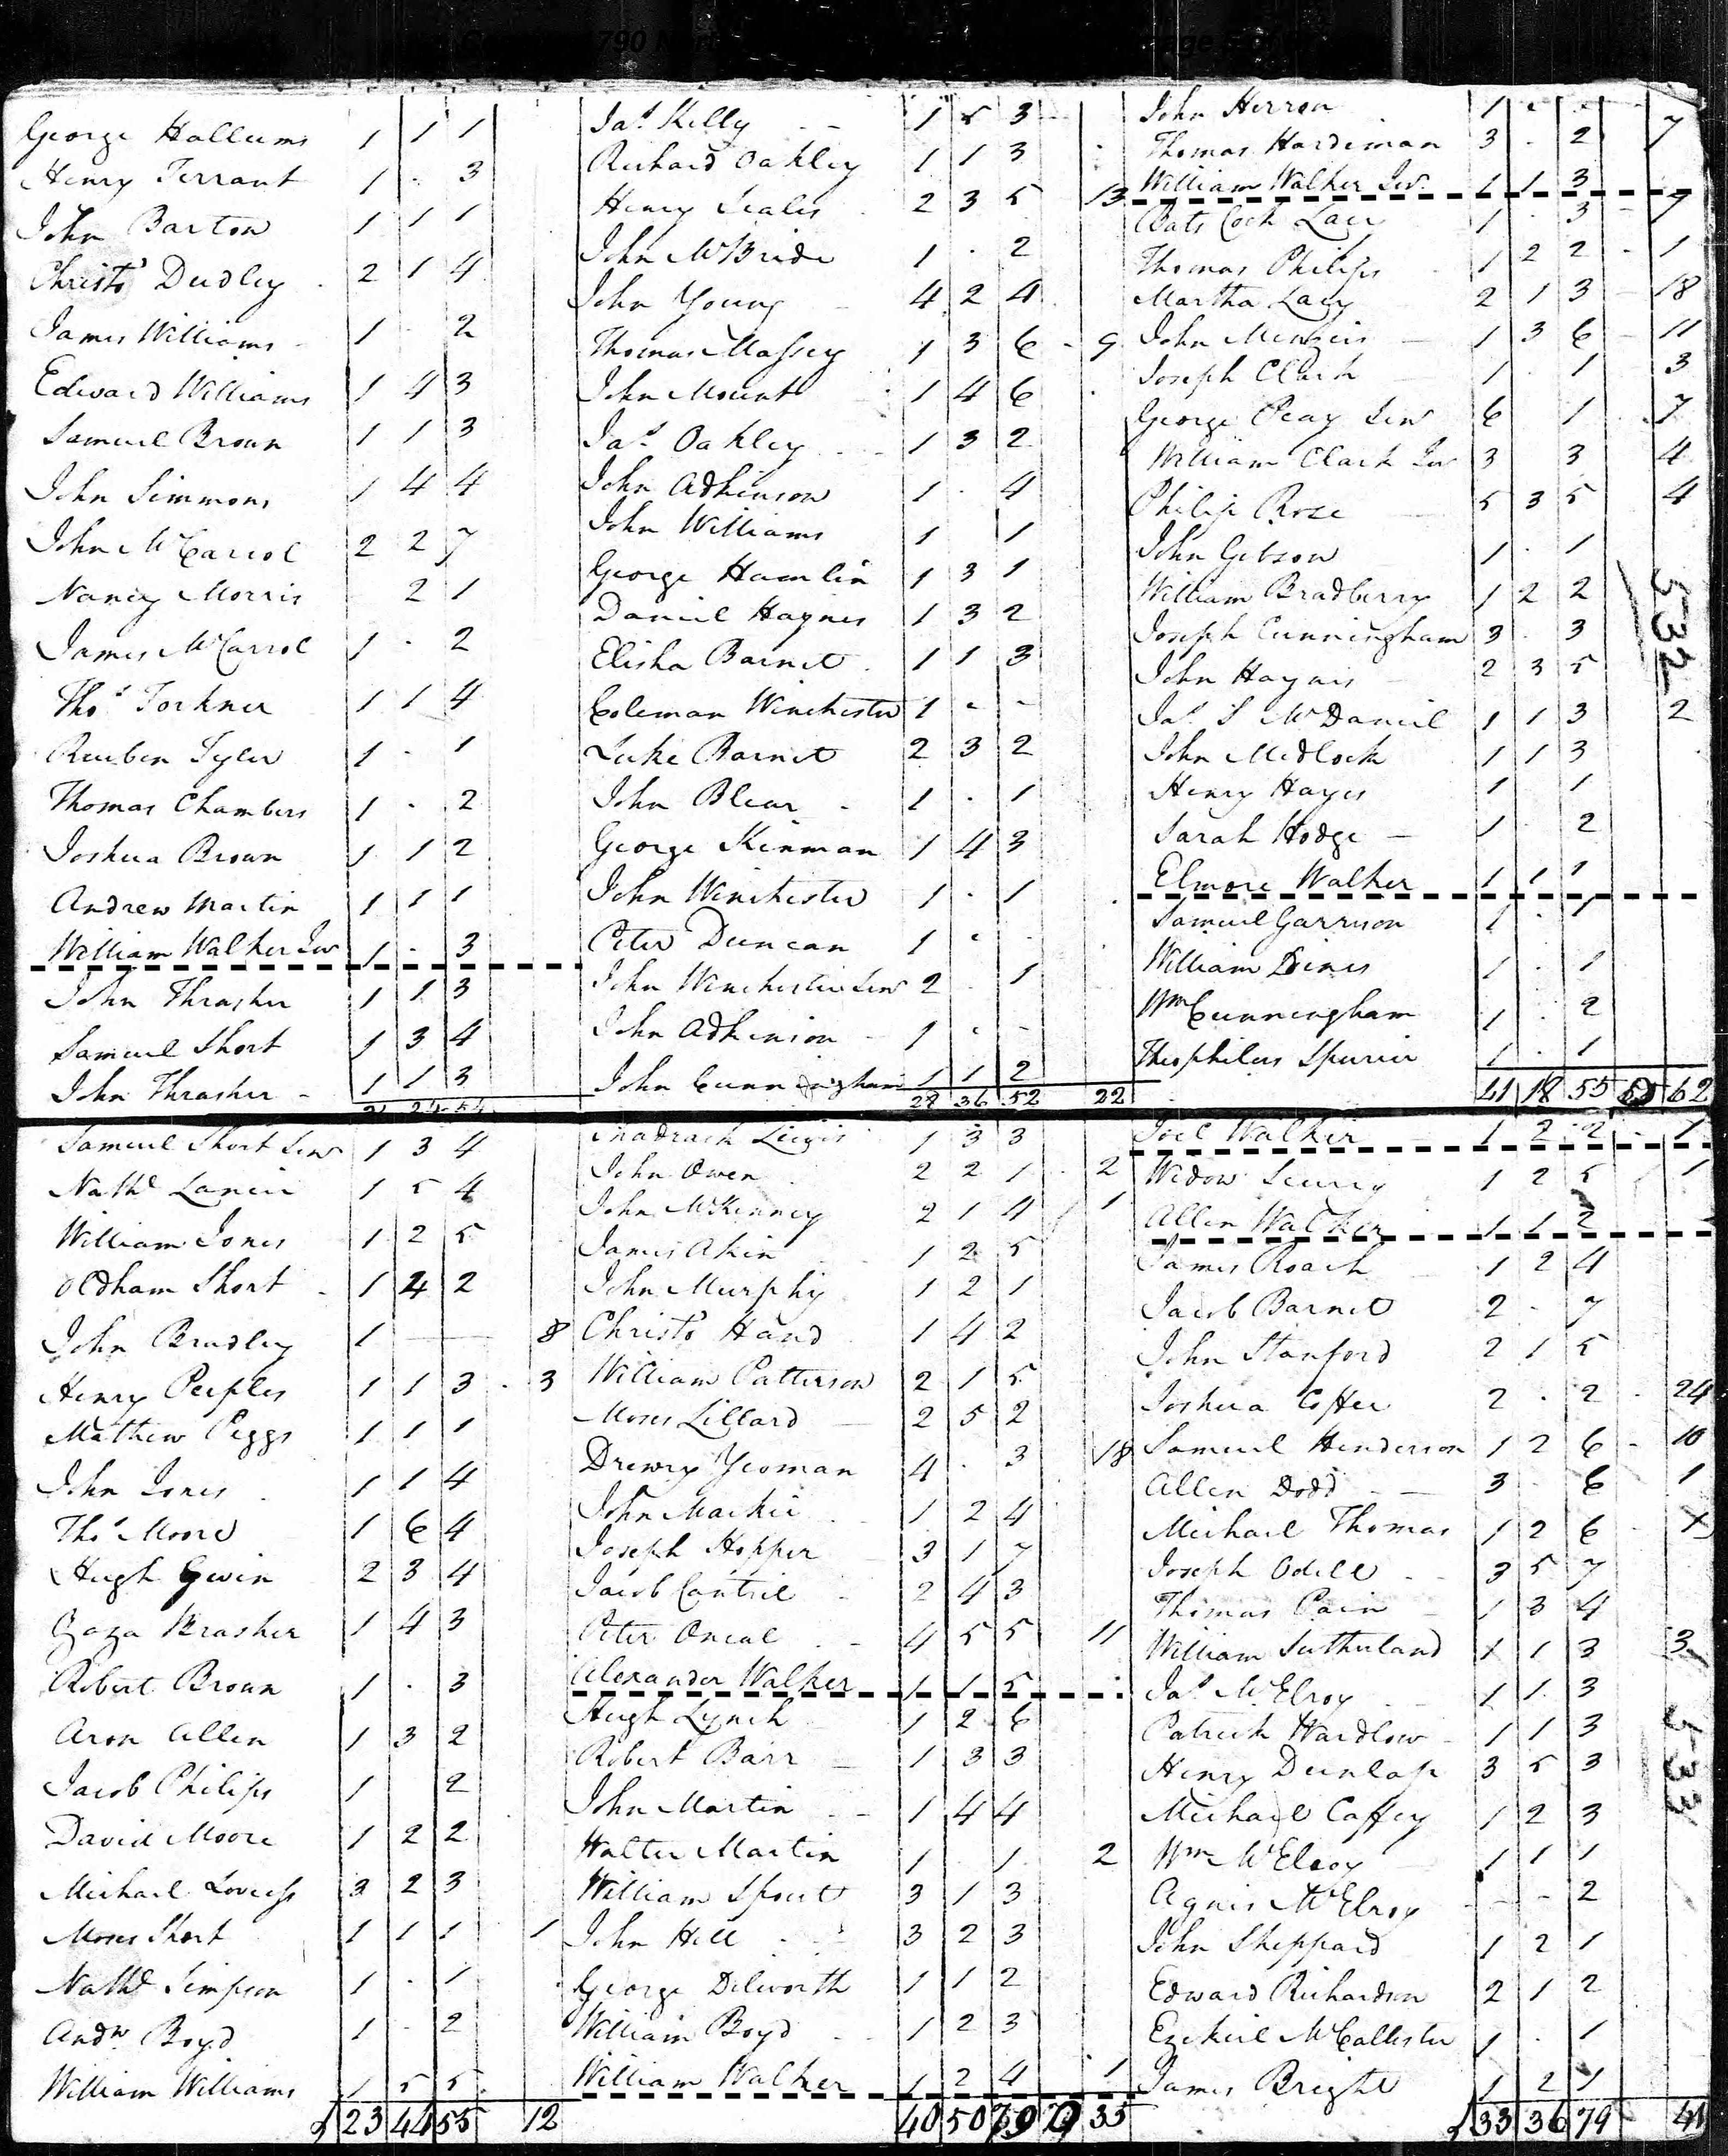 George Hallums 1 1 1
Henry Terrant 1 . 3
John Barton 1 1 1
Christo Dudley 2 1 4
James Williams 1 . 2
Edward Williams 1 4 3
Samuel Brown 1 1 3
John Simmons 1 4 4
John McCarrol 2 2 7
Nancy Morris 2 1
James McCarrol 1 . 2
Thos Forkner 1 1 4
Reuben Tyler 1 . 1
Thomas Chambers 1 . 2
Joshua Brown 1 1 2
Andrew Martin 1 1 1
William Walker 1 . 3
John Thrasher 1 1 3
Samuel Short 1 3 4
John Thrasher 1 1 3
Jas Kelly 1 5 3
Richard Oakley 1 1 3
Henry Seales 2 3 5 13
John McBride 1 . 2
John Young 4 2 4
Thomas Massey 1 3 6 9
John Mount 1 4 6
Jas Oakley 1 3 2
John Adkinson 1 . 4
John Williams 1 1
George Hamlin 1 3 1
Daniel Haynes 1 3 2
Elisha Barnet 1 1 3
Coleman Winchester 1 - -
Luke Barnet 2 3 2
John Blear 1 . 1
George Kinman 1 4 3
John Winchester 1 . 1
Peter Duncan 1 - .
John Winchester Senr 2 . 1
John Adkinson 1 - -
John Cunningham 1 1 2
28 36 52 22
John Herron 1 - -
Thomas Hardeman 3 . 2 7
William Walker Senr 1 1 3 7
Bats Cock Lacy 1 . 3
Thomas Philips 1 2 2 1
Martha Lacy 2 1 3 18
John Menzies 1 3 6 11
Joseph Clark 1 . 1 3
George Peay Senr 6 1 7
William Clark 3 3 4
Philip Rose 5 3 5 4
John Gibson 1 . 1
William Bradberry 1 2 2
Joseph Cunningham 3 . 3
John Haynes 2 3 5
Jas S McDaniel 1 1 3 2
John Medlock 1 1 3
Henry Hayes 1 1
Sarah Hodge 1 . 2
Elmore Walker 1 1 1
Samuel Garrison 1 . 1
William 1 . 1
Wm Cunningham 1 . 2
Theophilus Spurier 1 . 1
41 18 55 62
532
Samuel Short Senr 1 3 4
Nathl 1 5 4
William Jones 1 2 5
Oldham Short 1 4 2
John Bradley 1 8
Henry Peeples 1 1 3 . 3
Mathew Peggs 1 1 1
John Jones 1 1 4
Thos Moore 1 6 4
Hugh Gwin 2 3 4
Zaza Brasher 1 4 3
Robert Brown 1 . 3
Aron Allen 1 3 2
Jacob Philips 1 2
David Moore 1 2 2
Michael Loveless 3 2 3
Moses Short 1 1 1 1
Nathl Simpson 1 . 1
Andw Boyd 1 - 2
William Williams 1 5 5
23 44 55 12
Shadrach Lewis 1 3 3
John Owen 2 2 1 2
John McKinney 2 1 4 1
James Akin 1 2 5
John Murphy 1 2 1
Christo Hand 1 4 2
William Patterson 2 1 5
Moses Lillard 2 5 2
Drewry Yeoman 4 . 3 18
John Mackie 1 2 4
Joseph Hopper 3 1 7
Jacob Cantrel 2 4 3
Peter Oneal 4 5 5 11
Alexander Walker 1 1 5
Hugh Lynch 1 2 6
Robert Barr 1 3 3
John Martin 1 4 4
Walter Martin 1 1 2
William Spout 3 1 3
John Hill 3 2 3
George Dilworth 1 1 2
William Boyd 1 2 3
William Walker 1 2 4 1
40 50 79 35
Joel Walker 1 2 2 1
Widow Scurry 1 2 5 1
Allen Walker 1 1 2
James Roach 1 2 4
Jacob Barnet 2 - 7
John Stanford 2 1 5
Joshua Coffer 2 . 2 . 24
Samuel Henderson 1 2 6 10
Allen Dodd 3 6 1
Michael Thomas 1 2 6
Joseph Odell 3 5 7
Thomas Pain 1 3 4
William Sutherland 1 1 3 3
Jas McElroy 1 1 3
Patrick Wardlow 1 1 3
Henry Dunlap 3 5 3
Michael Caffey 1 2 3
Wm McElroy 1 1 1
Agnes McElroy - - 2
John Sheppard 1 2 1
Edward Richardson 2 1 2
Ezekiel McCallister 1 . 1
James Bright 1 2 1
33 36 79 41
533